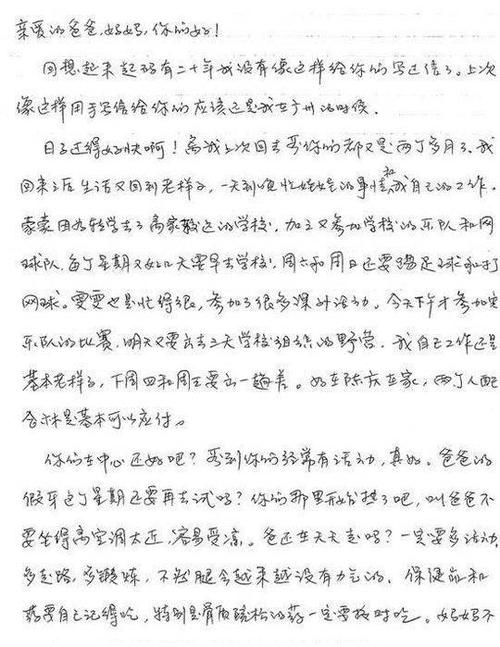 亲爱的爸爸，妈妈，你们好！
回想起来起码有二十年我没有像这样给你们写过信了。上次
像这样用手写信给你们应该还是我在广州的时候。
日子过得好快啊！离我上次回去看你们都又是两个多月了。我
回来之后生活又回到老样子，一天到晚忙娃娃的事情和我自己的工作。
豪豪因为转学去了离家较远的学校，加之又参加学校的乐队和网
球队，每个星期又好几天要早去学校，周六和周日还要踢足球和打
网球。雯雯也是忙得很，参加了很多课外活动。今天下午才参加完
乐队的比赛，明天又要出去三天学校组织的野营。我自己工作还是
基本老样子，下周四和周五要出一趟差。好在陈庆在家，两个人配
合来是基本可以应付。
你们在中心还好吧？看到你们经常有活动，真好。爸爸的
假牙这个星期还要再去试吗？你们那里开始热了吧，叫爸爸不
要坐得离空调太近，容易受凉。爸还在天天走吗？一定要多活动
多走路，多锻炼，不然腿会越来越没有力气的。保健品和
药要自己记得吃，特别是骨质疏松的药一定要按时吃。妈妈不